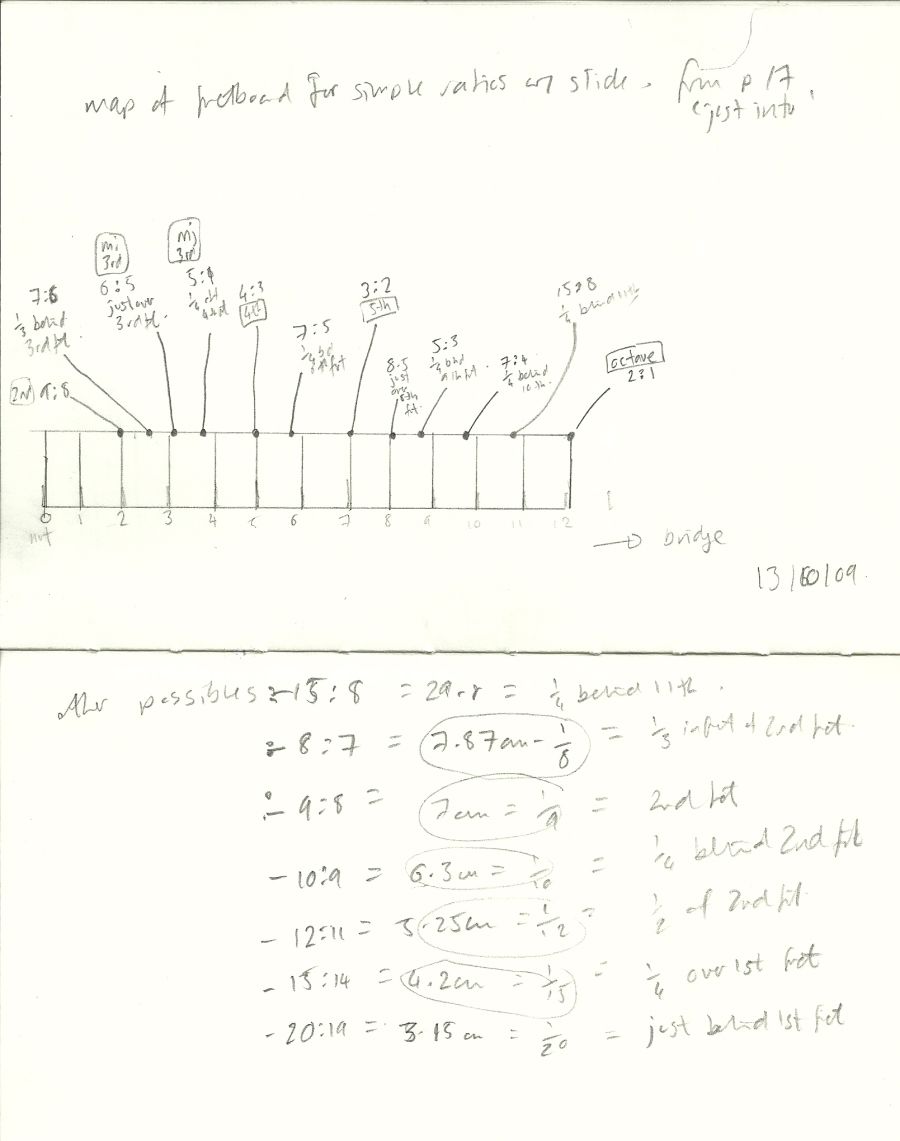 map of fretboard for simple ratios w/ slide. from p 17
(just into.
mi
3rd
Mj
3rd
7:6
1/3 behind
3rd ft.
6:5
just over
3rd ft.
5:4
1/4
4:3
4th
7:5
1/4
3:2
5th
8:5
just
over
8th
ft.
5:3
1/4 bhd
9th frt.
7:4
1/4 behind
10th.
15:8
1/4 behind 11th
octave
2:1
2nd 9:8
0 1 2 3 4 5 6 7 8 9 10 11 12
nut
→ bridge
13/10/09.
other possibles :- 15:8 = 29.8 = 1/4 behind 11th.
:- 8:7 = 7.87cm - 1/8 = 1/3 infrt of 2nd fret.
:- 9:8 = 7cm = 1/9 = 2nd frt
- 10:9 = 6.3cm = 1/10 = 1/4 behind 2nd frt
- 12:11 = 5.25cm = 1/12 = 1/2 of 2nd frt.
- 15:14 = 4.2cm = 1/15 = 1/4 over 1st fret
- 20:19 = 3.15cm = 1/20 = just behind 1st fret